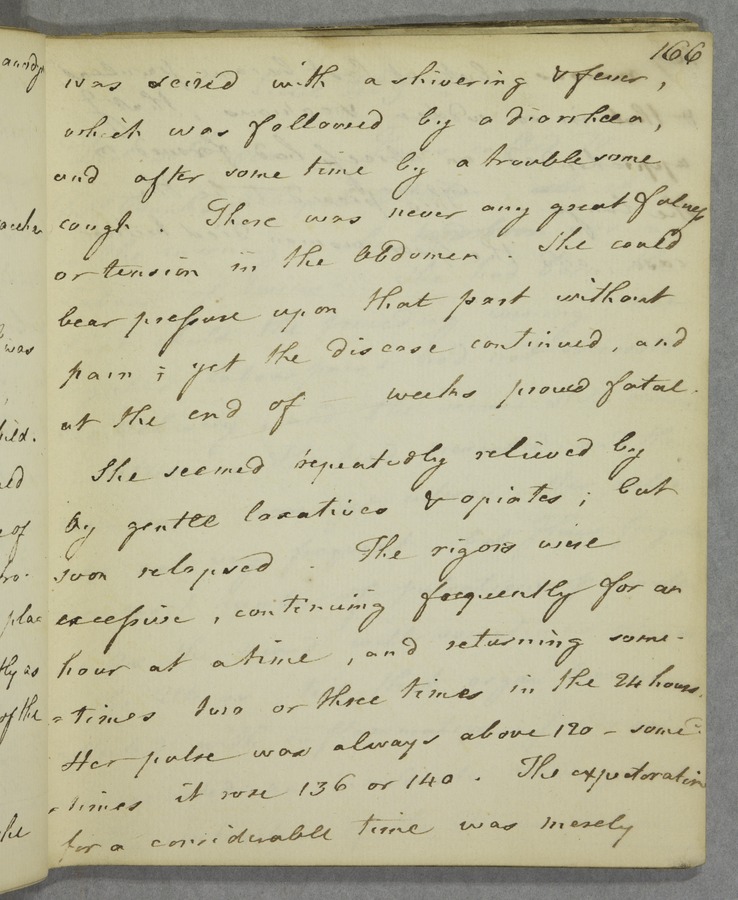 166
was seized with a shivering & fever,
which was followed by a diarrhœa,
and after some time by a troublesome
cough. There was never any great fulness
or tension in the Abdomen. She could
bear pressure upon that part without
pain; yet the disease continued, and
at the end of — weeks proved fatal.
She seemed repeatedly relieved by
by gentle laxatives & opiates; but
soon relapsed. The rigors were
excessive, continuing frequently for an
hour at a time, and returning some-
=times two or three times in the 24 hours.
Her pulse was always above 120 - some
-times it rose 136 or 140. The expectoration
for a considerable time was merely
was
of
plac
of the